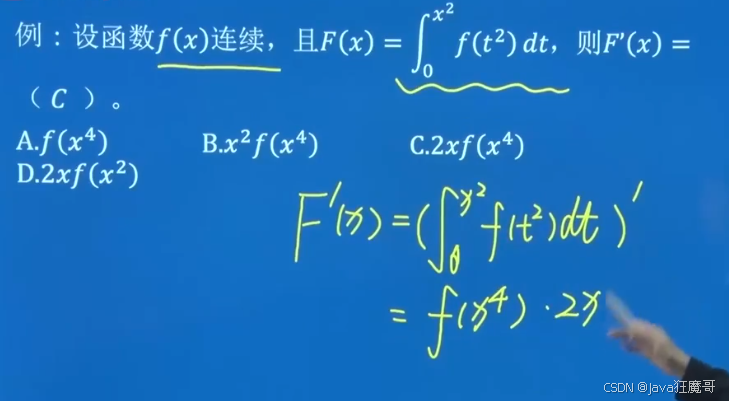 例：设函数f(x)连续，且F(x) = ∫₀^{x²} f(t²) dt，则F'(x) =
（ C ）。
A.f(x⁴) B.x²f(x⁴) C.2xf(x⁴)
D.2xf(x²)
F'(x) = (∫₀^{x²} f(t²)dt)'
= f(x⁴)·2x
CSDN @Java狂魔哥